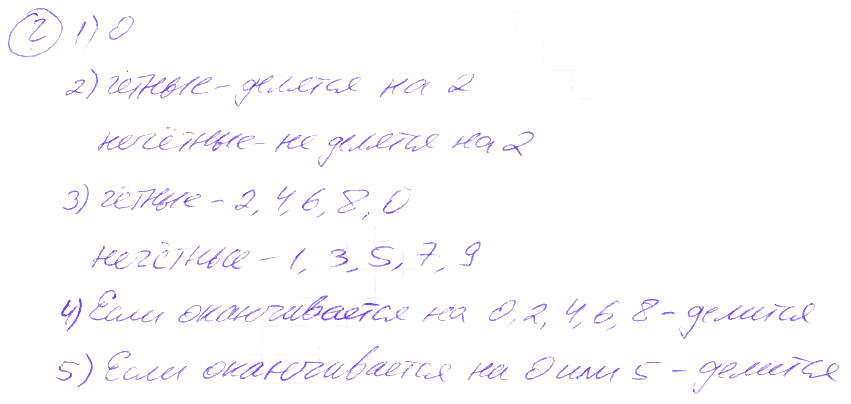 2 1) 0
2) чётные - делятся на 2
нечётные - не делятся на 2
3) чётные - 2, 4, 6, 8, 0
нечётные - 1, 3, 5, 7, 9
4) Если оканчивается на 0, 2, 4, 6, 8 - делится
5) Если оканчивается на 0 или 5 - делится